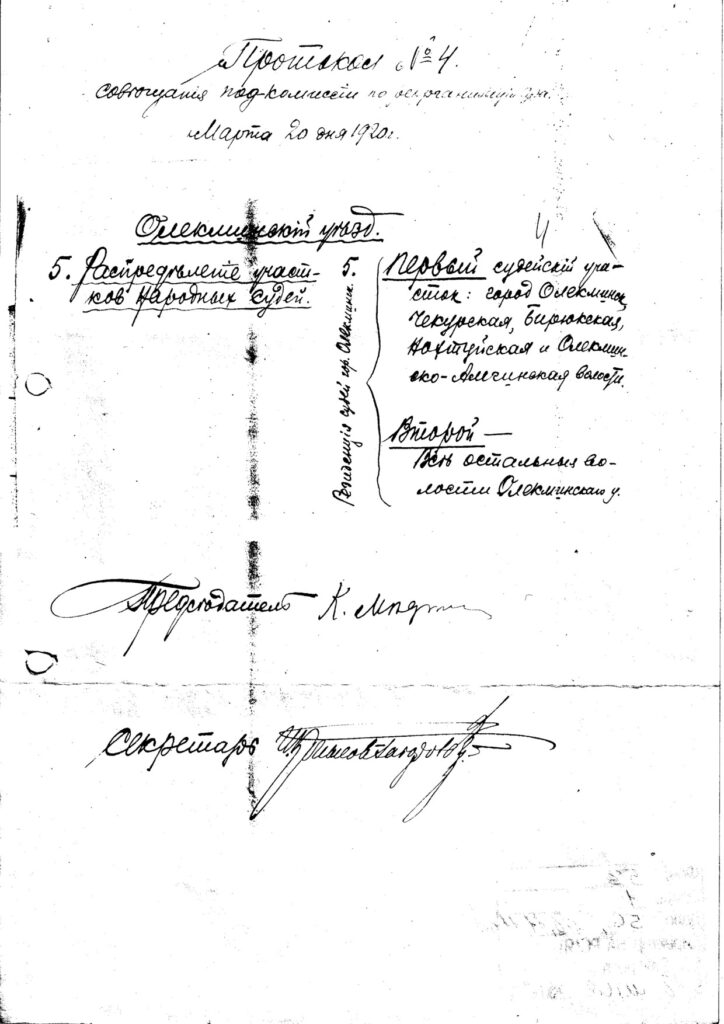 Протокол №4.
совѣщанія под-комиссіи по реорганизаціи
Марта 20 дня 1920 г.
4
Олекминскій уѣзд.
5. Распредѣленіе участ-
ков Народных судей.
5.
Резиденція судей гор. Олекминск.
Первый судейскій уча-
сток: город Олекминск,
Чекурская, Бирюкская,
Нохтуйская и Олекмин-
ско-Амгинская волости.
Второй —
Всѣ остальныя во-
лости Олекминскаго у.
Предсѣдатель К.
Секретарь